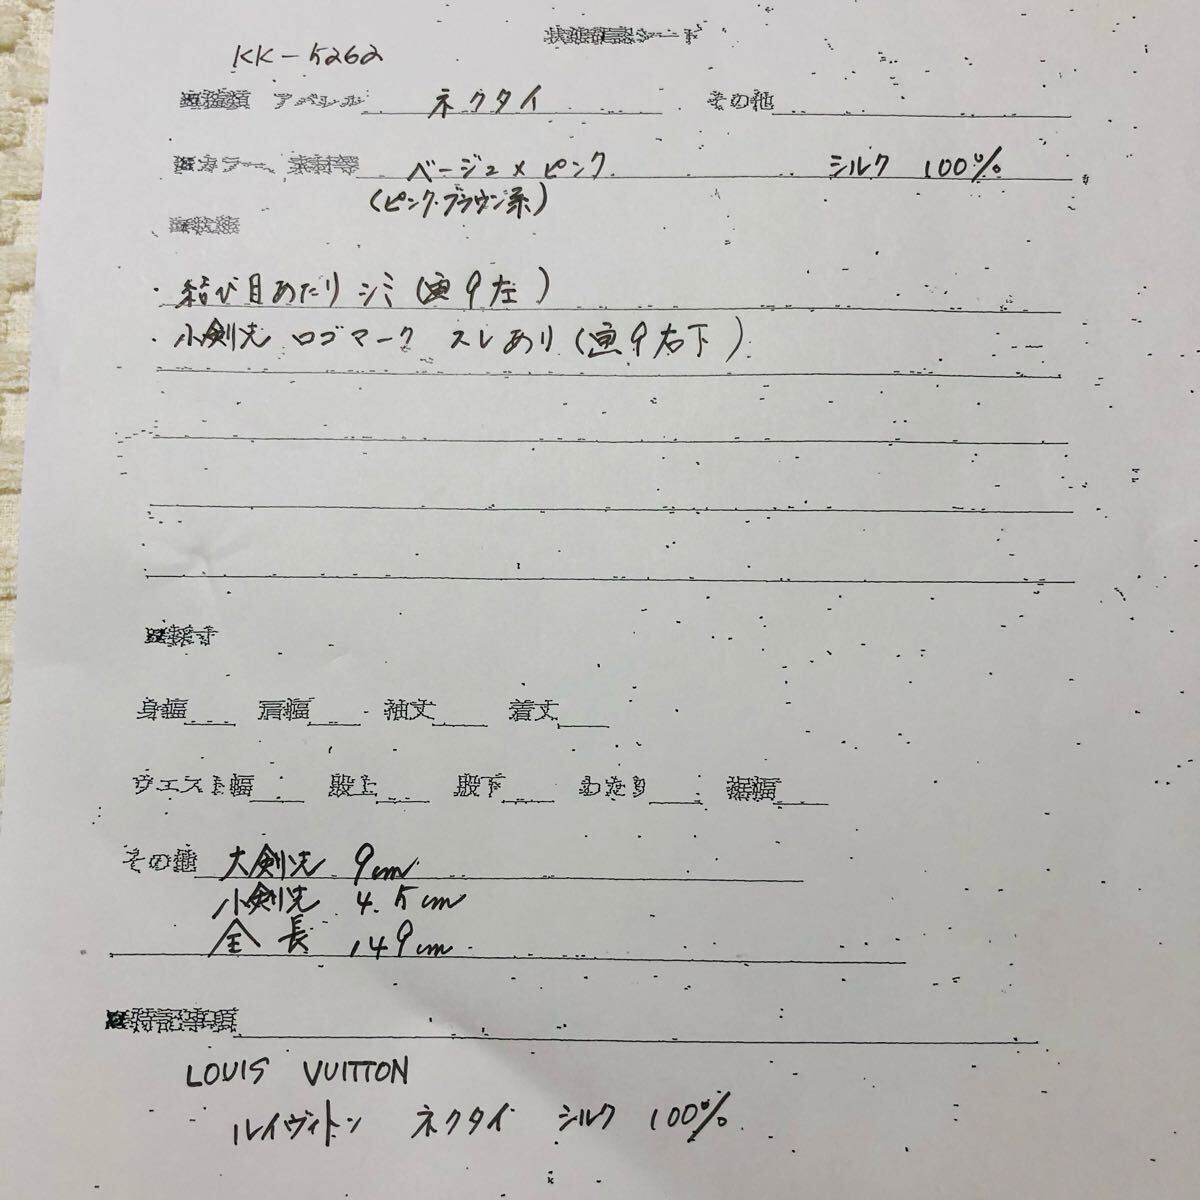 状態確認シート
KK-5262
■種類 アパレル ネクタイ その他
■カラー、素材等 ベージュ×ピンク シルク 100%
(ピンク・ブラウン系)
■状態
・結び目あたり シミ (画9左)
・小剣先 ロゴマーク スレあり (画9右下)
■採寸
身幅 肩幅 袖丈 着丈
ウエスト幅 股上 股下 わたり 裾幅
その他 大剣先 9cm
小剣先 4.5cm
全長 149cm
■特記事項
LOUIS VUITTON
ルイヴィトン ネクタイ シルク 100%